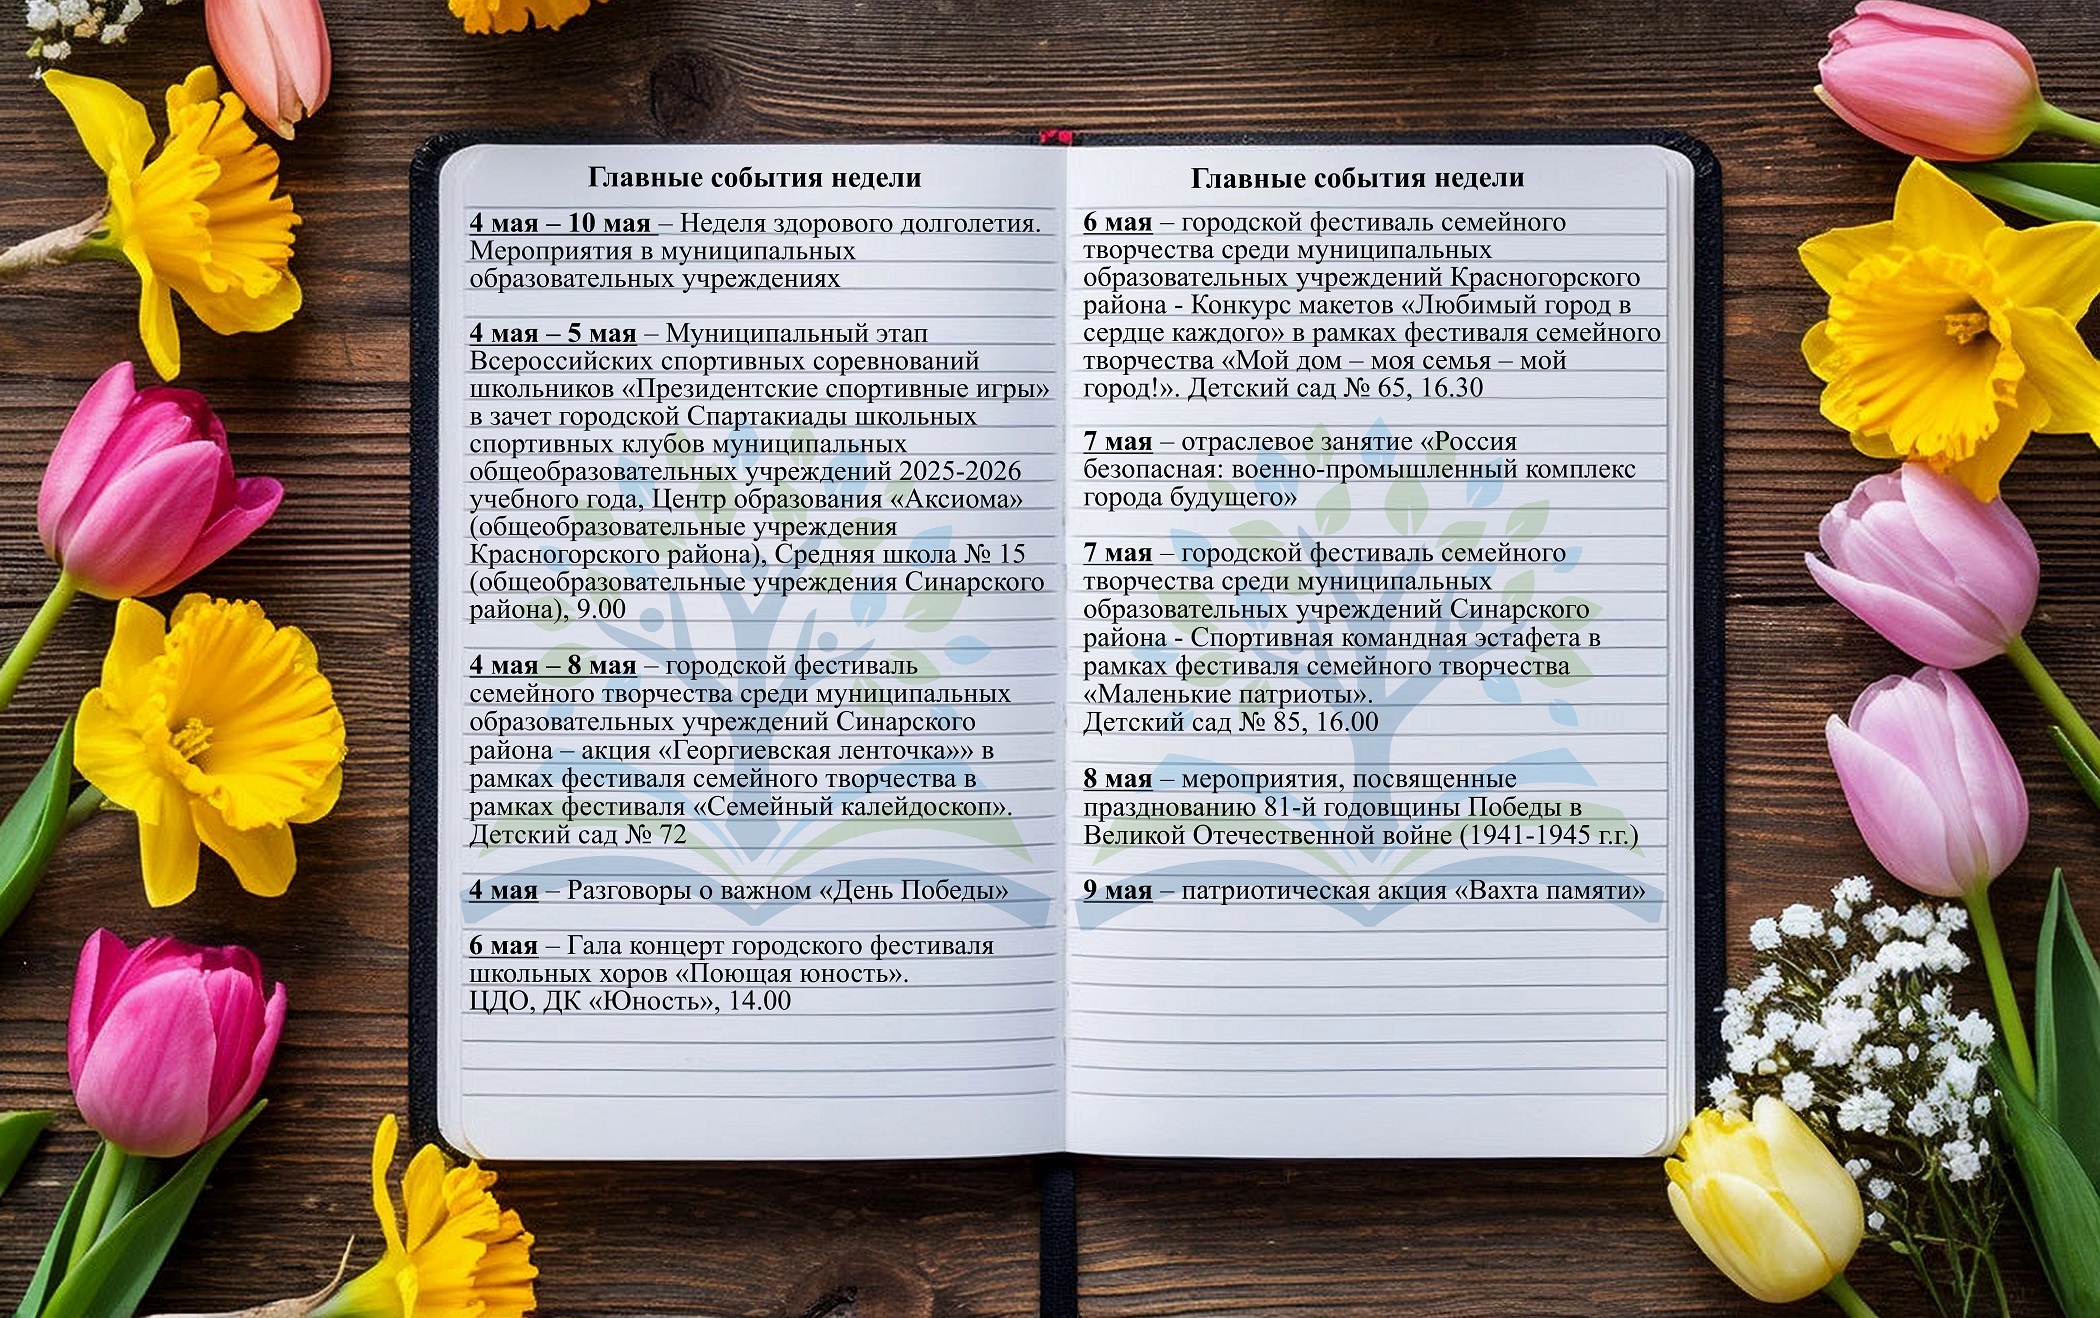 Главные события недели
4 мая – 10 мая – Неделя здорового долголетия.
Мероприятия в муниципальных
образовательных учреждениях
4 мая – 5 мая – Муниципальный этап
Всероссийских спортивных соревнований
школьников «Президентские спортивные игры»
в зачет городской Спартакиады школьных
спортивных клубов муниципальных
общеобразовательных учреждений 2025-2026
учебного года, Центр образования «Аксиома»
(общеобразовательные учреждения
Красногорского района), Средняя школа № 15
(общеобразовательные учреждения Синарского
района), 9.00
4 мая – 8 мая – городской фестиваль
семейного творчества среди муниципальных
образовательных учреждений Синарского
района – акция «Георгиевская ленточка»» в
рамках фестиваля семейного творчества в
рамках фестиваля «Семейный калейдоскоп».
Детский сад № 72
4 мая – Разговоры о важном «День Победы»
6 мая – Гала концерт городского фестиваля
школьных хоров «Поющая юность».
ЦДО, ДК «Юность», 14.00
Главные события недели
6 мая – городской фестиваль семейного
творчества среди муниципальных
образовательных учреждений Красногорского
района - Конкурс макетов «Любимый город в
сердце каждого» в рамках фестиваля семейного
творчества «Мой дом – моя семья – мой
город!». Детский сад № 65, 16.30
7 мая – отраслевое занятие «Россия
безопасная: военно-промышленный комплекс
города будущего»
7 мая – городской фестиваль семейного
творчества среди муниципальных
образовательных учреждений Синарского
района - Спортивная командная эстафета в
рамках фестиваля семейного творчества
«Маленькие патриоты».
Детский сад № 85, 16.00
8 мая – мероприятия, посвященные
празднованию 81-й годовщины Победы в
Великой Отечественной войне (1941-1945 г.г.)
9 мая – патриотическая акция «Вахта памяти»